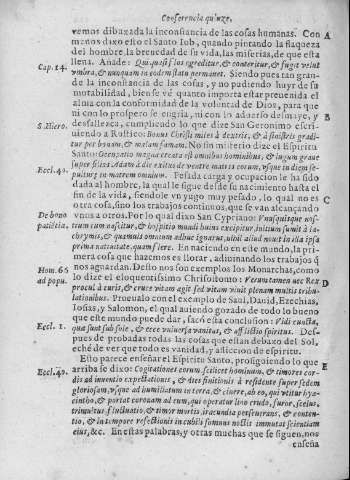 Conferencia quinze.
vemos dibuxada la inconstancia de las cosas humanas. Con A
menos dixo esto el Santo Iob, quando pintando la flaqueza
del hombre, la breuedad de su vida, las miserias, de que esta
Cap. 14. llena. Añade: Qui quasi flos egreditur, & conteritur, & fugit velut
vmbra, & nunquam in eodem statu permanet. Siendo pues tan gran-
de la inconstancia de las cosas, y no pudiendo huyr de su
mutabilidad, bien se vè quanto importa estar preuenida el
alma con la conformidad de la voluntad de Dios, para que
ni con lo prospero se engria, ni con lo aduerso desmaye, y B
S. Hiero. desfallezca, cumpliendo lo que dize San Geronimo escri-
uiendo a Rustico: Bonus Christi miles à dextris, & à sinistris gradi-
tur per bonam, & malam famam. No sin misterio dize el Espiritu
Eccl. 40. Santo: Occupatio magna creata est omnibus hominibus, & iugum graue
super filios Adam à die exitus de ventre matris eorum, vsque in diem sepe-
pulturę in matrem omnium. Pesada carga y ocupacion le ha sido
dada al hombre, la qual le sigue desde su nacimiento hasta el
fin de la vida, siendole vn yugo muy pesado, lo qual no es
otra cosa, sino los trabajos continuos, que se van alcançando C
De bono vnos a otros. Por lo qual dixo San Cypriano: Vnusquisque nos-
patiētia. trum cum nascitur, & hospitio mundi huius excipitur, initium sumit à la-
chrymis, & quamuis omnium adhuc ignarus, nihil aliud nouit in illa ipsa
prima natiuitate, quam flere. En naciendo en este mundo, la pri-
mera cosa que hazemos es llorar, adiuinando los trabajos q̃
Hom. 66 nos aguardan. Desto nos son exemplos los Monarchas, como
ad popu. lo dize el eloquentissimo Chrisostomo: Veruntamen nec Rex D
procul à curis, & cruce vitam agit sed vitam viuit plenam multis tribu-
lationibus. Prueualo con el exemplo de Saul, Dauid, Ezechias,
Iosias, y Salomon, el qual auiendo gozado de todo lo bueno
que este mundo puede dar, sacò esta conclusion: Vidi cuncta,
Eccl. 1. quæ sunt sub sole, & ecce vniuersa vanitas, & afflictio spiritus. Des-
pues de probadas todas las cosas que estan debaxo del Sol,
echè de ver que todo es vanidad, y affliccion de espiritu.
Esto parece enseñar el Espiritu Santo, prosiguiendo lo que E
Eccl. 40. arriba se dixo: Cogitationes eorum, scilicet hominum, & timores cor-
dis ad inuentio expectationis, & dies finitionis à residente super sedem
gloriosam, vsque ad humiliatum in terra, & cinere, ab eo, qui vtitur hya-
cintho, & portat coronam ad eum, qui operatur lino crudo, furor, zelus,
tumultus, fluctuatio, & timor mortis, iracundia perseuerans, & conten-
tio, & in tempore refectionis in cubili somnus noctis immutat scientiam
eius, &c. En estas palabras, y otras muchas que se siguen, nos
enseña